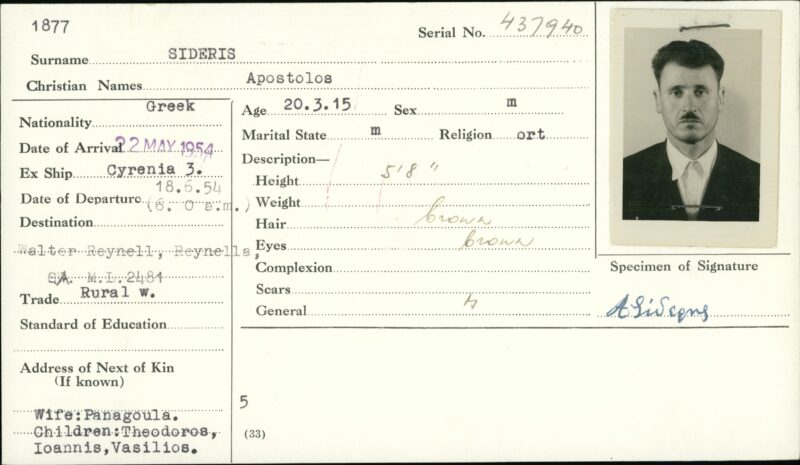 1877
Serial No. 437940
Surname SIDERIS
Christian Names Apostolos
Nationality Greek
Date of Arrival 22 MAY 1954
Ex Ship Cyrenia 3.
Date of Departure 18.6.54
(6. 0 a.m.)
Destination
Walter Reynell, Reynella,
SA. M.L.2481
Trade Rural w.
Standard of Education
Address of Next of Kin
(If known)
Wife:Panagoula.
Children:Theodoros,
Ioannis,Vasilios.
Age 20.3.15 Sex m
Marital State m Religion ort
Description—
Height 5'8"
Weight
Hair brown
Eyes brown
Complexion
Scars
General
5
(33)
Specimen of Signature